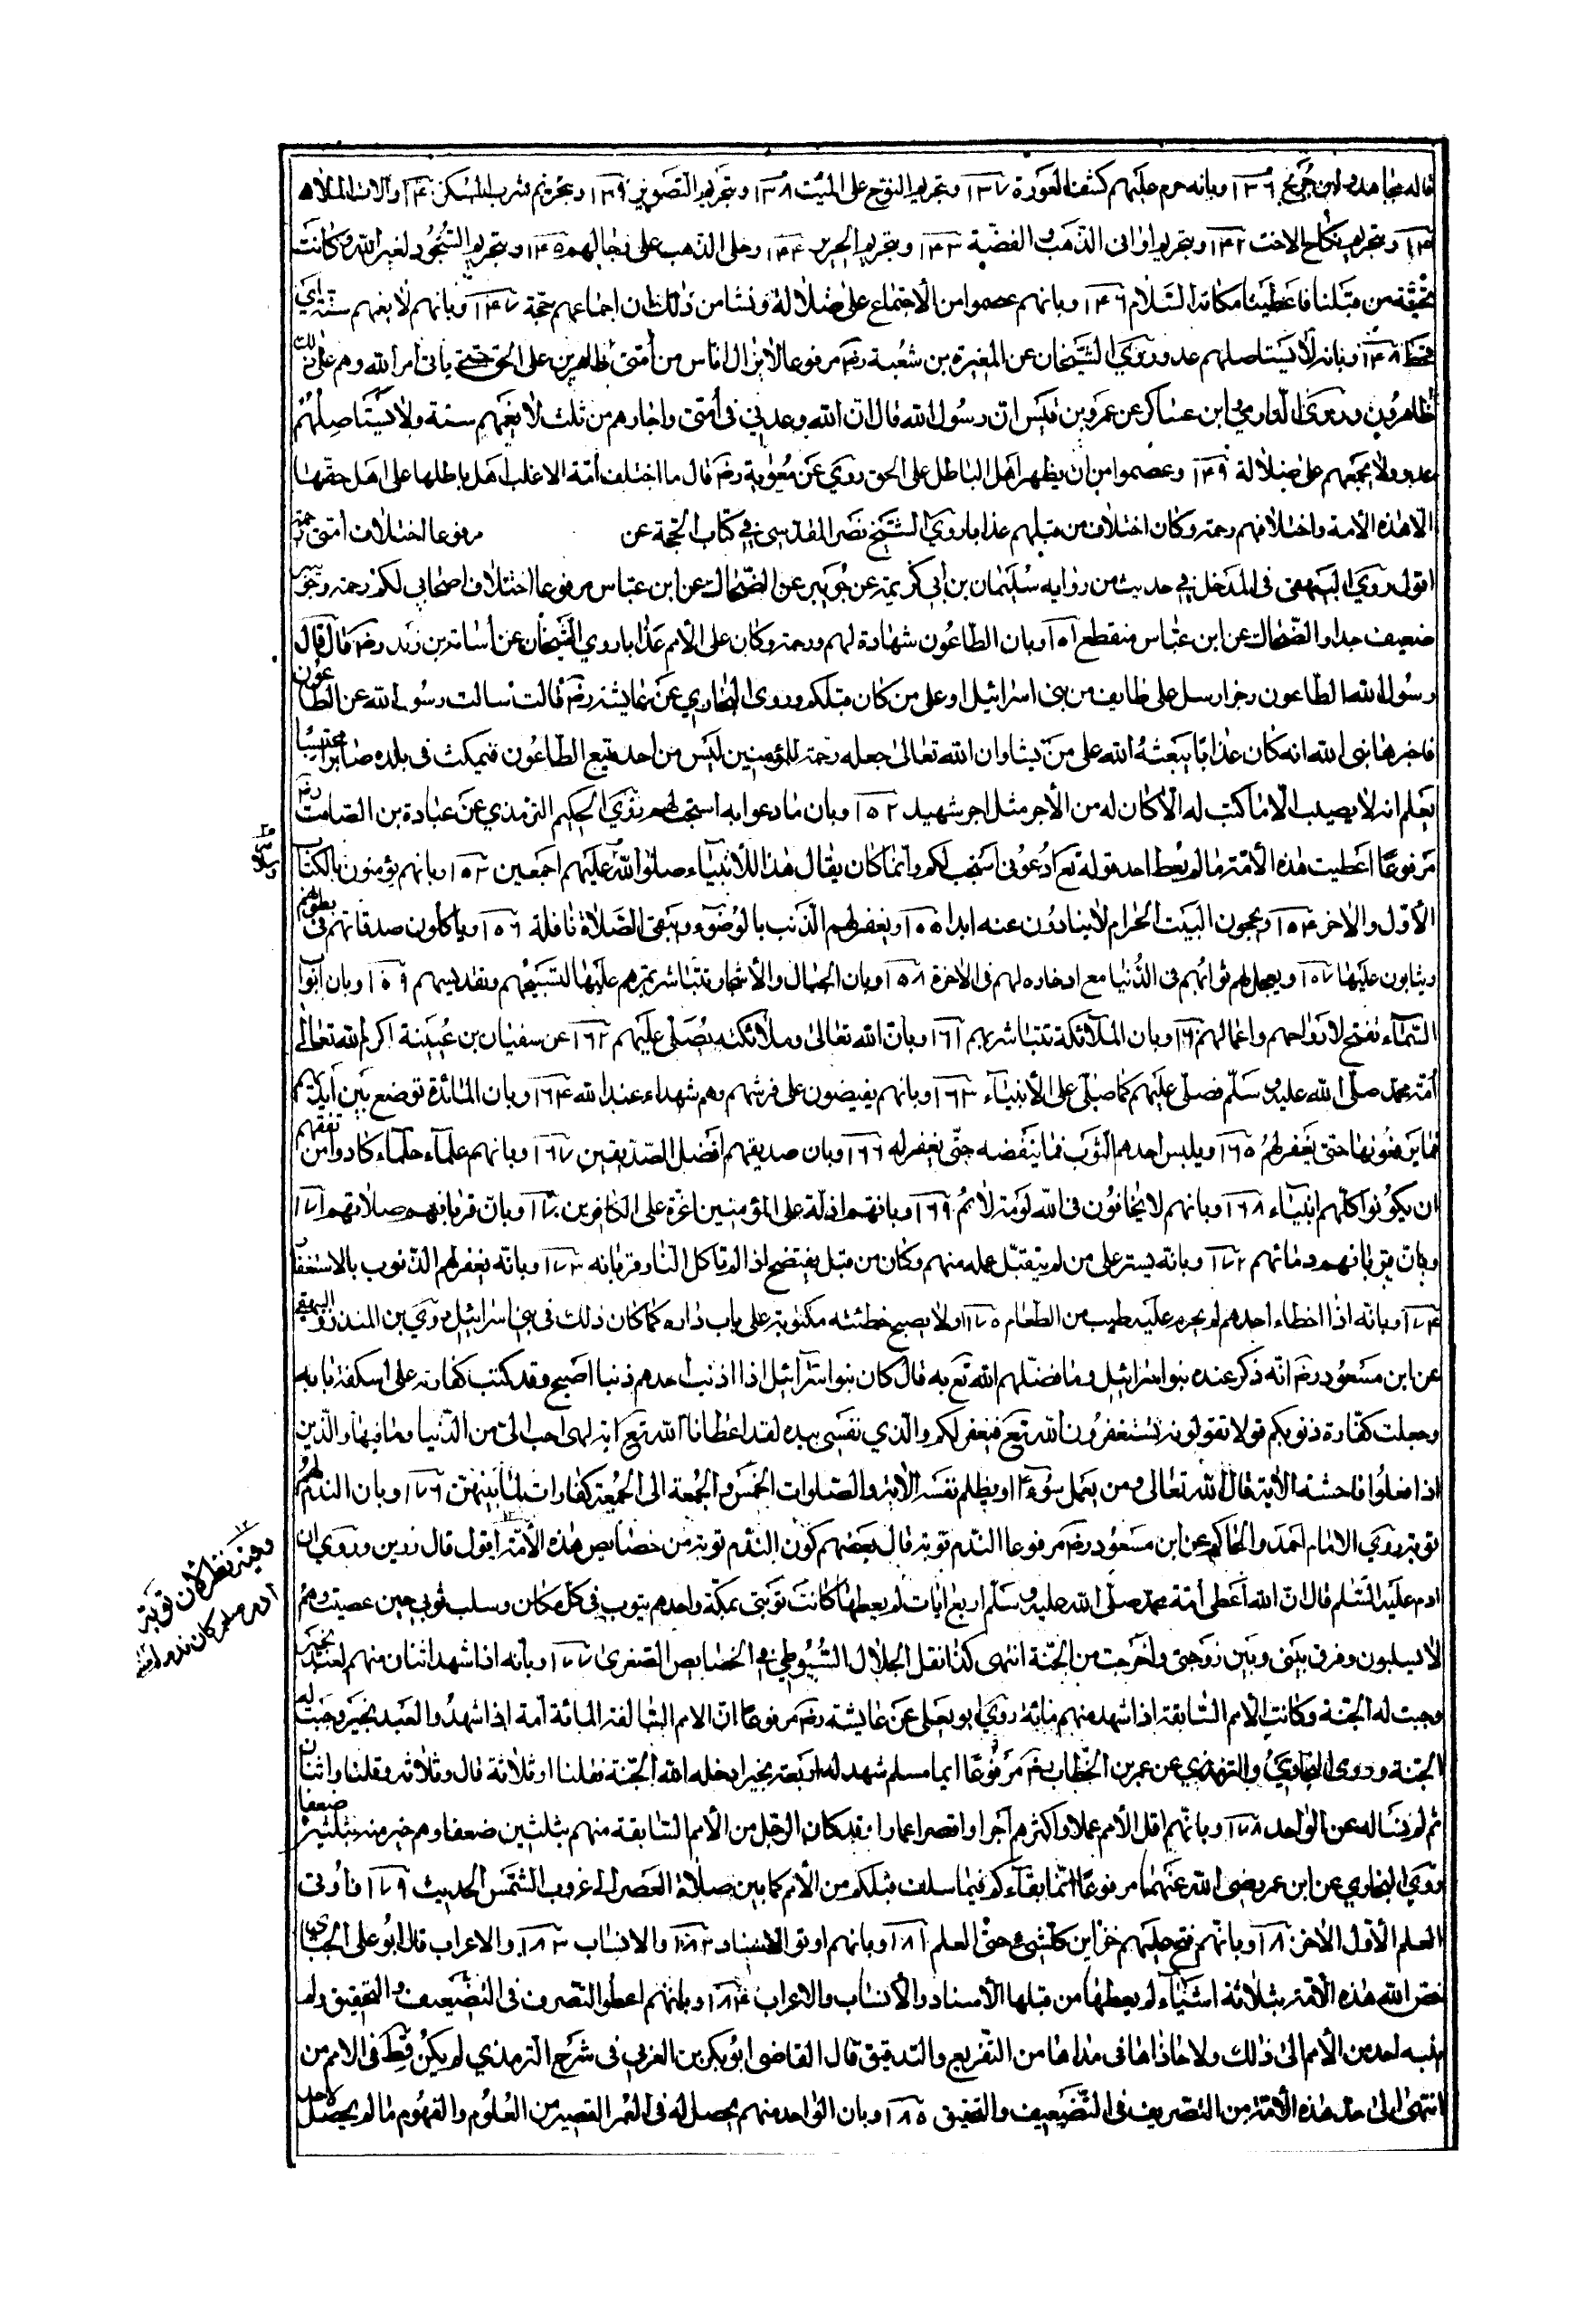 قاله مجاهد وابن جريج ١٣٦ وبانه حرم عليهم كشف العورة ١٣٧ وبتحريم النوح على الميت ١٣٨ وبتحريم التصوير ١٣٩ وبتحريم شرب المسكر ١٤٠ والات الملاهى
١٤١ وبتحريم نكاح الاخت ١٤٢ وبتحريم اوانى الذهب والفضة ١٤٣ وبتحريم الحرير ١٤٤ وحلى الذهب على رجالهم ١٤٥ وبتحريم السجود لغير الله وكانت
تحية من قبلنا فاعطينا مكانه السلام ١٤٦ وبانهم عصموا من الاجتماع على ضلالة ونشا من ذلك ان اجماعهم حجة ١٤٧ وبانهم لا يعمهم سنة اى
قحط ١٤٨ وبانه لا يستاصلهم عدو وروي الشيخان عن المغيرة بن شعبة رضـ مرفوعا لا يزال اناس من أمتى ظاهرين على الحق حتى ياتى امر الله وهم على ذلك
ظاهرون وروى الدارمي وابن عساكر عن عمرو بن قيس ان رسول الله قال ان الله وعدني فى أمتى واجارهم من ثلث لا يعمهم سنة ولا يستاصلهم
عدو ولا يجمعهم على ضلالة ١٤٩ وعصموا من ان يظهر اهل الباطل على الحق روي عن معوية رضـ قال ما اختلف أمة الا غلب اهل باطلها على اهل حقها
الا هذه الامة واختلافهم رحمة وكان اختلاف من قبلهم عذابا روي الشيخ نصر المقدسى فى كتاب الحجة عن مرفوعا اختلاف أمتى رحمة
اقول روي البيهقى فى المدخل فى حديث من رواية سليمان بن أبى كريمة عن جويبر عن الضحاك عن ابن عباس مرفوعا اختلاف اصحابي لكم رحمة وجويبر
ضعيف جدا والضحاك عن ابن عباس منقطع ١٥١ وبان الطاعون شهادة لهم ورحمة وكان على الامم عذابا روي الشيخان عن أسامة بن زيد رضـ قال قال
رسول الله الطاعون رجز ارسل على طايف من بنى اسرائيل او على من كان قبلكم وروى البخاري عن عايشة رضـ قالت سالت رسول الله عن الطاعون
فاخبرها نبى الله انه كان عذابا يبعثه الله على من يشا وان الله تعالى جعله رحمة للمؤمنين ليس من احد يقع الطاعون فيمكث فى بلده صابرا محتسبا
يعلم انه لا يصيبه الا ما كتب له الا كان له من الأجر مثل اجر شهيد ١٥٢ وبان ما دعوا به استجب لهم روي الحكيم الترمذي عن عبادة بن الصامت رضـ
مرفوعا اعطيت هذه الأمة ما لم يعط احد قوله تع ادعونى استجب لكم وانما كان يقال هذا للأنبياء صلوا الله عليهم اجمعين ١٥٣ وبانهم يؤمنون بالكتاب
الأول والاخر ١٥٤ ويحجون البيت الحرام لا ينادون عنه ابدا ١٥٥ ويغفر لهم الذنب بالوضوء ويبقى الصلاة نافلة ١٥٦ وياكلون صدقاتهم فى بطونهم
ويثابون عليها ١٥٧ ويعجل لهم ثوابهم فى الدنيا مع ادخاره لهم فى الاخرة ١٥٨ وبان الجبال والأشجار تتباشر بممرهم عليها لتسبيحهم وتقديسهم ١٥٩ وبان ابوا
السماء تفتح لارواحهم واعمالهم ١٦٠ وبان الملائكة تتباشر بهم ١٦١ وبان الله تعالى وملائكته يصلى عليهم ١٦٢ عن سفيان بن عيينة اكرم الله تعالى
أمة محمد صلى الله عليه وسلم فصلى عليهم كما صلى على الأنبياء ١٦٣ وبانهم يقبضون على فرشهم وهم شهداء عند الله ١٦٤ وبان المائدة توضع بين ايديهم
فما يرفعونها حتى يغفر لهم ١٦٥ ويلبس احدهم الثوب فما ينفضه حتى يغفر له ١٦٦ وبان صديقهم افضل الصديقين ١٦٧ وبانهم علماء حلماء كادوا من تفقههم
ان يكونوا كلهم انبياء ١٦٨ وبانهم لا يخافون فى الله لومة لائم ١٦٩ وبانهم اذلة على المؤمنين اعزة على الكافرين ١٧٠ وبان قربانهم صلاتهم ١٧١
وبان قربانهم دمائهم ١٧٢ وبانه يستر على من لم يتقبل عمله منهم وكان من قبل يفتضح اذا لم تاكل النار قربانه ١٧٣ وبانه يغفر لهم الذنوب بالاستغفا
١٧٤ وبانه اذا اخطاء احدهم لم يحرم عليه طيب من الطعام ١٧٥ ولا يصبح خطئته مكتوبة على باب داره كما كان ذلك فى بنى اسرائيل روي بن المنذر والبيهقى
عن ابن مسعود رضـ انه ذكر عنده بنوا اسرائيل وما فضلهم الله تع به قال كان بنوا اسرائيل اذا اذنب احدهم ذنبا اصبح وقد كتب كفارته على اسكفة بابه
وجعلت كفارة ذنوبكم قولا تقولونه تستغفرون الله تع فيغفر لكم والذي نفسى بيده لقد اعطانا الله تع اية لهى احب الى من الدنيا وما فيها والذين
اذا فعلوا فاحشة الاية قال الله تعالى ومن يعمل سوءا او يظلم نفسه الاية والصلوات الخمس والجمعة الى الجمعة كفارات لما بينهن ١٧٦ وبان الندم لهم
توبة روي الامام احمد والحاكم عن ابن مسعود رضـ مرفوعا الندم توبة قال بعضهم كون الندم توبة من خصايص هذه الأمة اقول قال رزين وروي ان
ادم عليه السلم قال ان الله أعطى أمة محمد صلى الله عليه وسلم اربع ايات لم يعطها كانت توبتى بمكة واحدهم يتوب فى كل مكان وسلب ثوبى حين عصيت وهم
لا يسلبون وفرق بينى وبين زوجتى واخرجت من الجنة انتهى كذا نقل الجلال السيوطى فى الخصايص الصغرى ١٧٧ وبانه اذا شهد اثنان منهم لعبد بخير
وجبت له الجنة وكانت الامم السابقة اذا شهد منهم مائة روي ابو يعلى عن عايشة رضـ مرفوعا ان الامم السالفة المائة أمة اذا شهدوا لعبد بخير وجبت له
الجنة وروى البخاري والترمذي عن عمر بن الخطاب رضـ مرفوعا ايما مسلم شهد له اربعة بخير ادخله الله الجنة فقلنا او ثلاثة قال وثلاثة وقلنا واثنان
ثم لم نساله عن الواحد ١٧٨ وبانهم اقل الأمم عملا واكثرهم أجرا واقصر اعمارا وقد كان الرجل من الأمم السابقة منهم بثلثين ضعفا وهم خير منه بثلثين ضعفا
وروي البخاري عن ابن عمر رضى الله عنهما مرفوعا انما بقاءكم فيما سلف قبلكم من الأمم كما بين صلاة العصر الى غروب الشمس الحديث ١٧٩ فاوتى
العلم الأول الاخر ١٨٠ وبانهم فتح عليهم خزاين كلشىء حتى العلم ١٨١ وبانهم اوتوا الاسناد ١٨٢ والانساب ١٨٣ والاعراب قال ابو على الجبائى
خص الله هذه الأمة بثلاثة اشياء لم يعطها من قبلها الأسناد والأنساب والاعراب ١٨٤ وبانهم اعطوا التصرف فى التضعيف والتحقيق ولم
احد من الأمم الى ذلك ولا حاذاها فى مداها من التفريع والتدقيق قال القاضى ابو بكر بن العربي فى شرح الترمذي لم يكن قط فى الامم من
انتهى الى حد هذه الأمة من التصريف فى التضعيف والتحقيق ١٨٥ وبان الواحد منهم يحصل له فى العمر القصير من العلوم والفهوم ما لم يحصل لاحد
وفيه نظر لان توبة